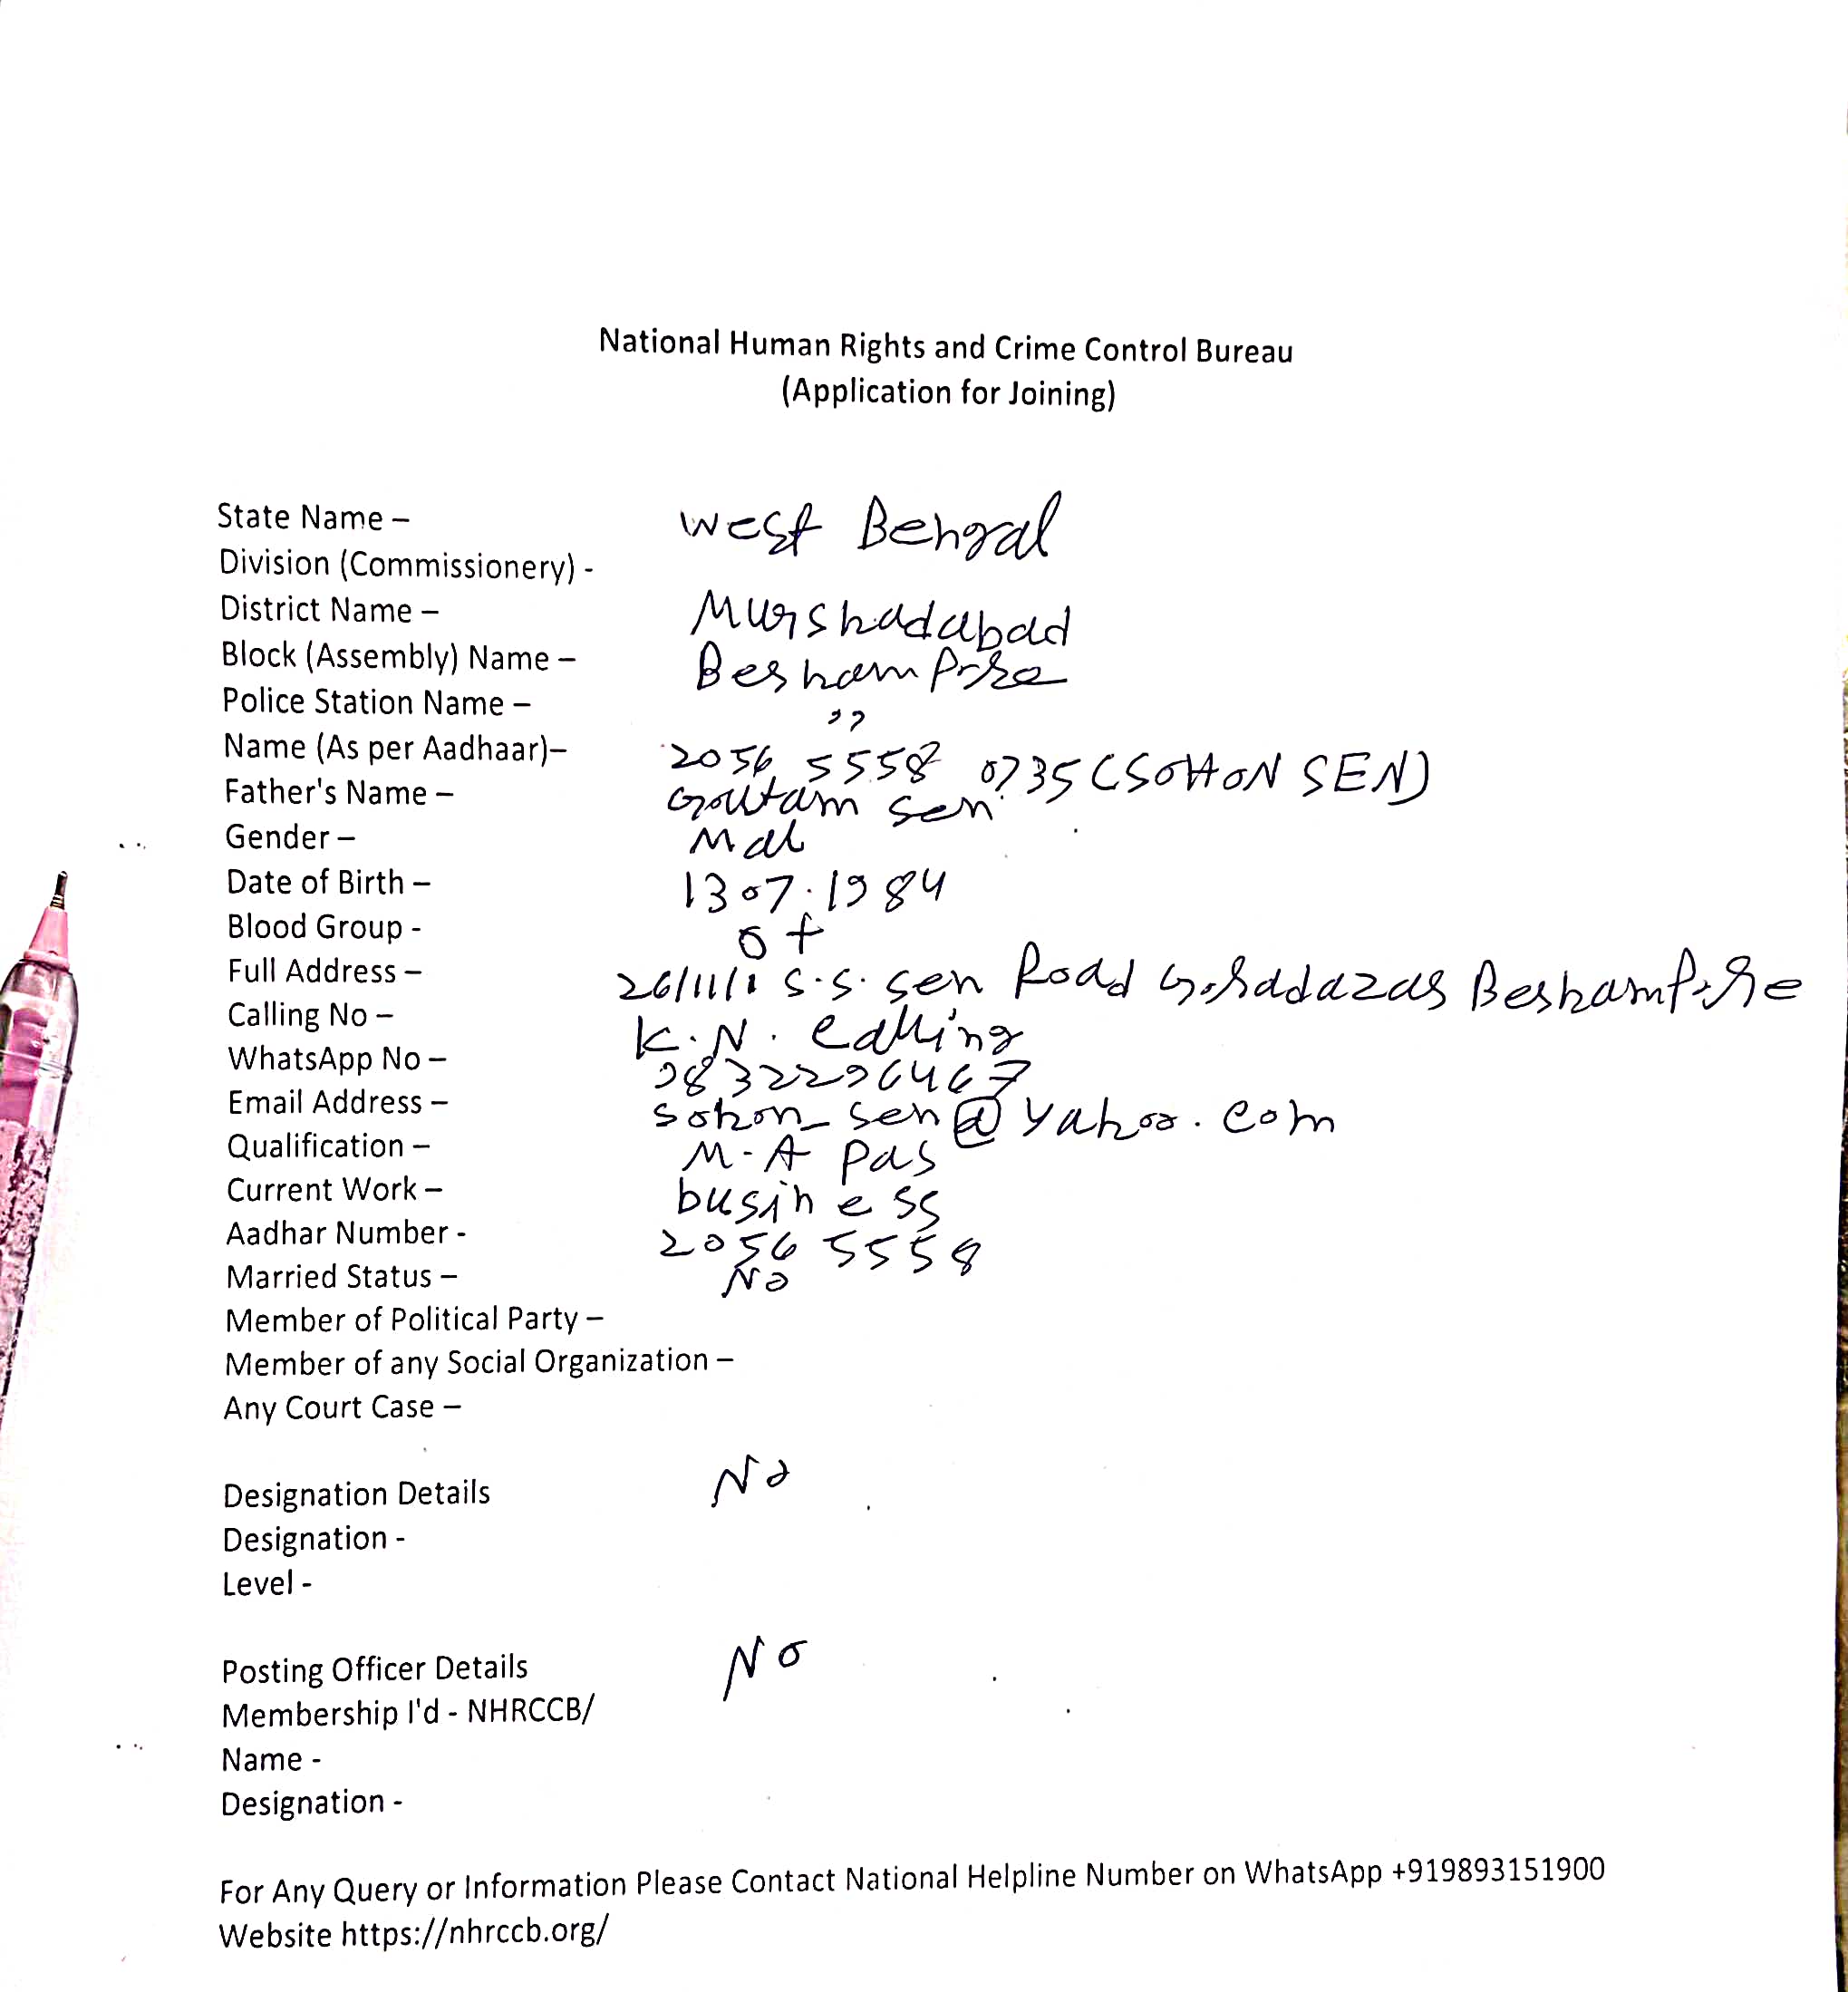 National Human Rights and Crime Control Bureau
(Application for Joining)
State Name – West Bengal
Division (Commissionery) -
District Name – Murshadabad
Block (Assembly) Name –
Police Station Name – ,,
Name (As per Aadhaar)– 2056 5558 0735 (SOHON SEN)
Father's Name – Goutam Sen
Gender – Mal
Date of Birth – 13 07.1984
Blood Group - O+
Full Address – 26/11/1 S.S. Sen Road
Calling No – K.N. Calling
WhatsApp No – 9832296467
Email Address – sohon_sen@yahoo.com
Qualification – M.A Pas
Current Work – business
Aadhar Number - 2056 5558
Married Status – No
Member of Political Party –
Member of any Social Organization –
Any Court Case –
Designation Details No
Designation -
Level -
Posting Officer Details No
Membership I'd - NHRCCB/
Name -
Designation -
For Any Query or Information Please Contact National Helpline Number on WhatsApp +919893151900
Website https://nhrccb.org/